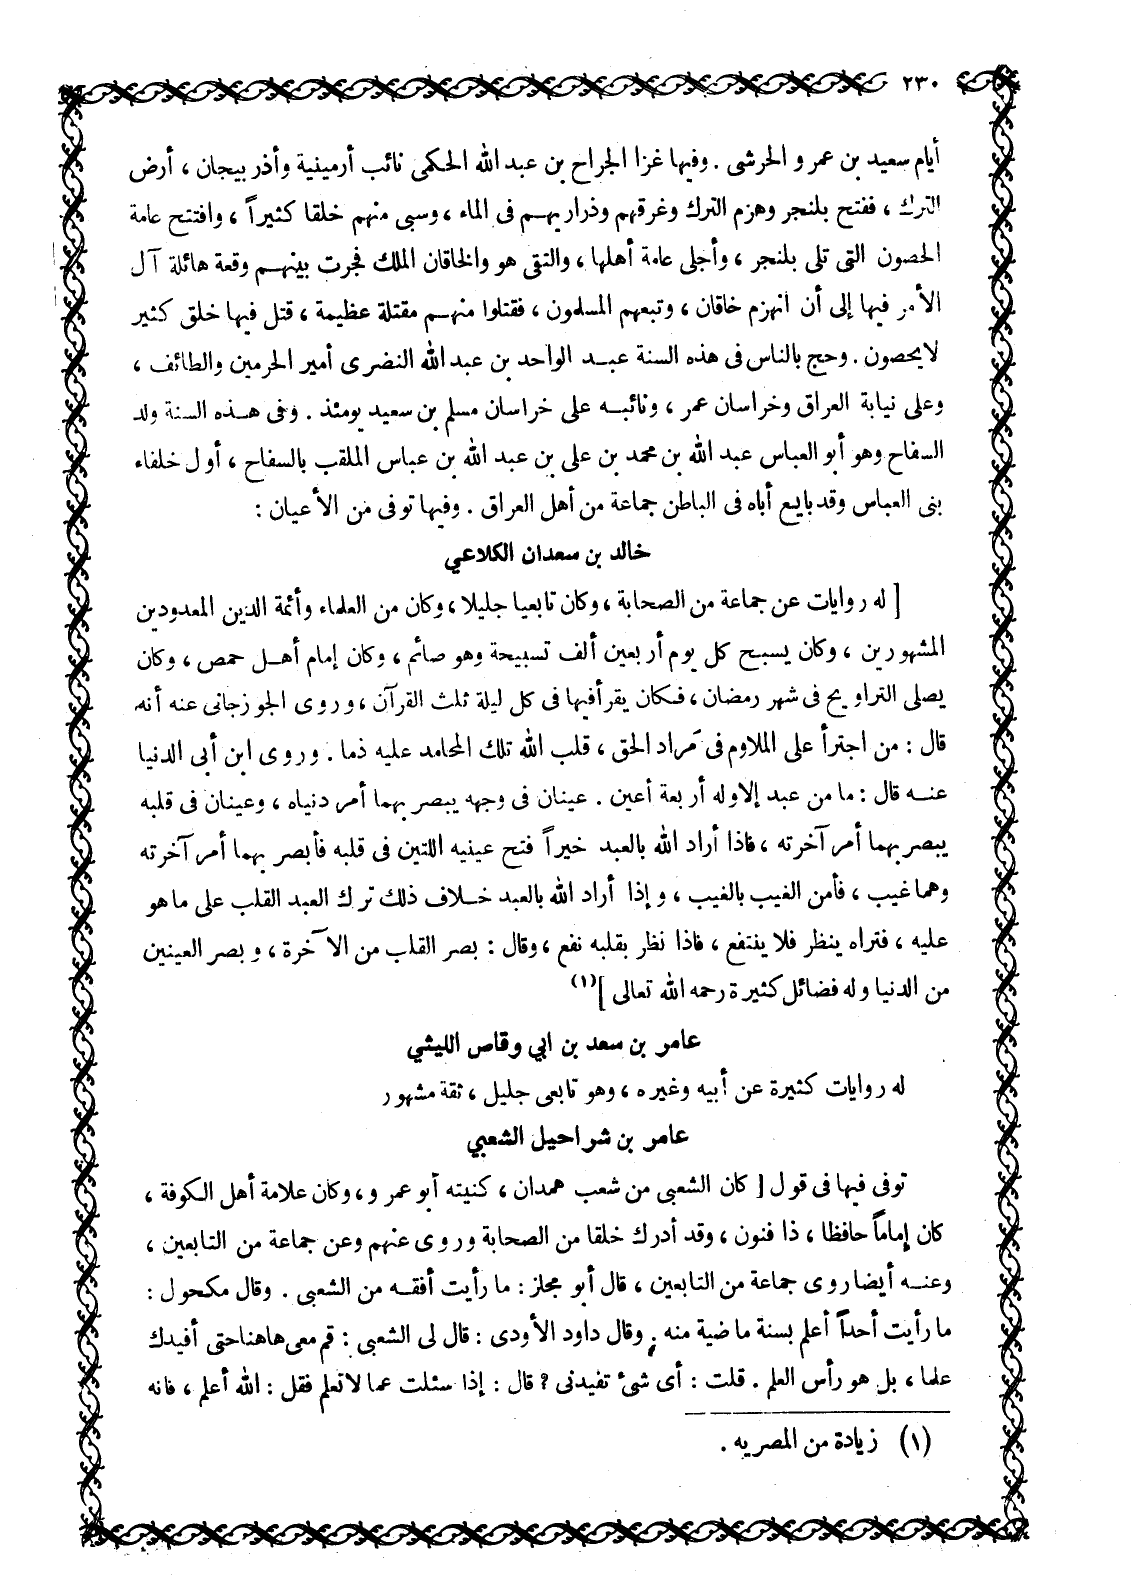 ٢٣٠
أيام سعيد بن عمرو الحرشى . وفيها غزا الجراح بن عبد الله الحكمى نائب أرمينية وأذر بيجان ، أرض
الترك ، ففتح بلنجر وهزم الترك وغرقهم وذراريهم فى الماء ، وسبى منهم خلقا كثيراً ، وافتتح عامة
الحصون التى تلى بلنجر ، وأجلى عامة أهلها ، والتقى هو والخاقان الملك فجرت بينهم وقعة هائلة آل
الأمر فيها إلى أن انهزم خاقان ، وتبعهم المسلمون ، فقتلوا منهم مقتلة عظيمة ، قتل فيها خلق كثير
لا يحصون . وحج بالناس فى هذه السنة عبد الواحد بن عبد الله النضرى أمير الحرمين والطائف ،
وعلى نيابة العراق وخراسان عمر ، ونائبه على خراسان مسلم بن سعيد يومئذ . وفى هذه السنة ولد
السفاح وهو أبو العباس عبد الله بن محمد بن على بن عبد الله بن عباس الملقب بالسفاح ، أول خلفاء
بنى العباس وقد بايع أباه فى الباطن جماعة من أهل العراق . وفيها توفى من الأعيان :
خالد بن سعدان الكلاعي
[ له روايات عن جماعة من الصحابة ، وكان تابعيا جليلا ، وكان من العلماء وأئمة الدين المعدودين
المشهورين ، وكان يسبح كل يوم أربعين ألف تسبيحة وهو صائم ، وكان إمام أهل حمص ، وكان
يصلى التراويح فى شهر رمضان ، فكان يقرأ فيها فى كل ليلة ثلث القرآن ، وروى الجوزجانى عنه أنه
قال : من اجترأ على الملاوم فى مراد الحق ، قلب الله تلك المحامد عليه ذما . وروى ابن أبى الدنيا
عنه قال : ما من عبد إلا وله أربعة أعين . عينان فى وجهه يبصر بهما أمر دنياه ، وعينان فى قلبه
يبصر بهما أمر آخرته ، فاذا أراد الله بالعبد خيراً فتح عينيه اللتين فى قلبه فأبصر بهما أمر آخرته
وهما غيب ، فأمن الغيب بالغيب ، وإذا أراد الله بالعبد خلاف ذلك ترك العبد القلب على ما هو
عليه ، فتراه ينظر فلا ينتفع ، فاذا نظر بقلبه نفع ، وقال : بصر القلب من الآخرة ، وبصر العينين
من الدنيا وله فضائل كثيرة رحمه الله تعالى ](١)
عامر بن سعد بن ابي وقاص الليثي
له روايات كثيرة عن أبيه وغيره ، وهو تابعى جليل ، ثقة مشهور
عامر بن شراحيل الشعبي
توفى فيها فى قول [ كان الشعبى من شعب همدان ، كنيته أبو عمرو ، وكان علامة أهل الكوفة ،
كان إماماً حافظا ، ذا فنون ، وقد أدرك خلقا من الصحابة وروى عنهم وعن جماعة من التابعين ،
وعنه أيضا روى جماعة من التابعين ، قال أبو مجلز : ما رأيت أفقه من الشعبى . وقال مكحول :
ما رأيت أحداً أعلم بسنة ماضية منه . وقال داود الأودى : قال لى الشعبى : قم معى هاهنا حتى أفيدك
علما ، بل هو رأس العلم . قلت : أى شئ تفيدنى ? قال : إذا سئلت عما لا تعلم فقل : الله أعلم ، فانه
(١) زيادة من المصريه .